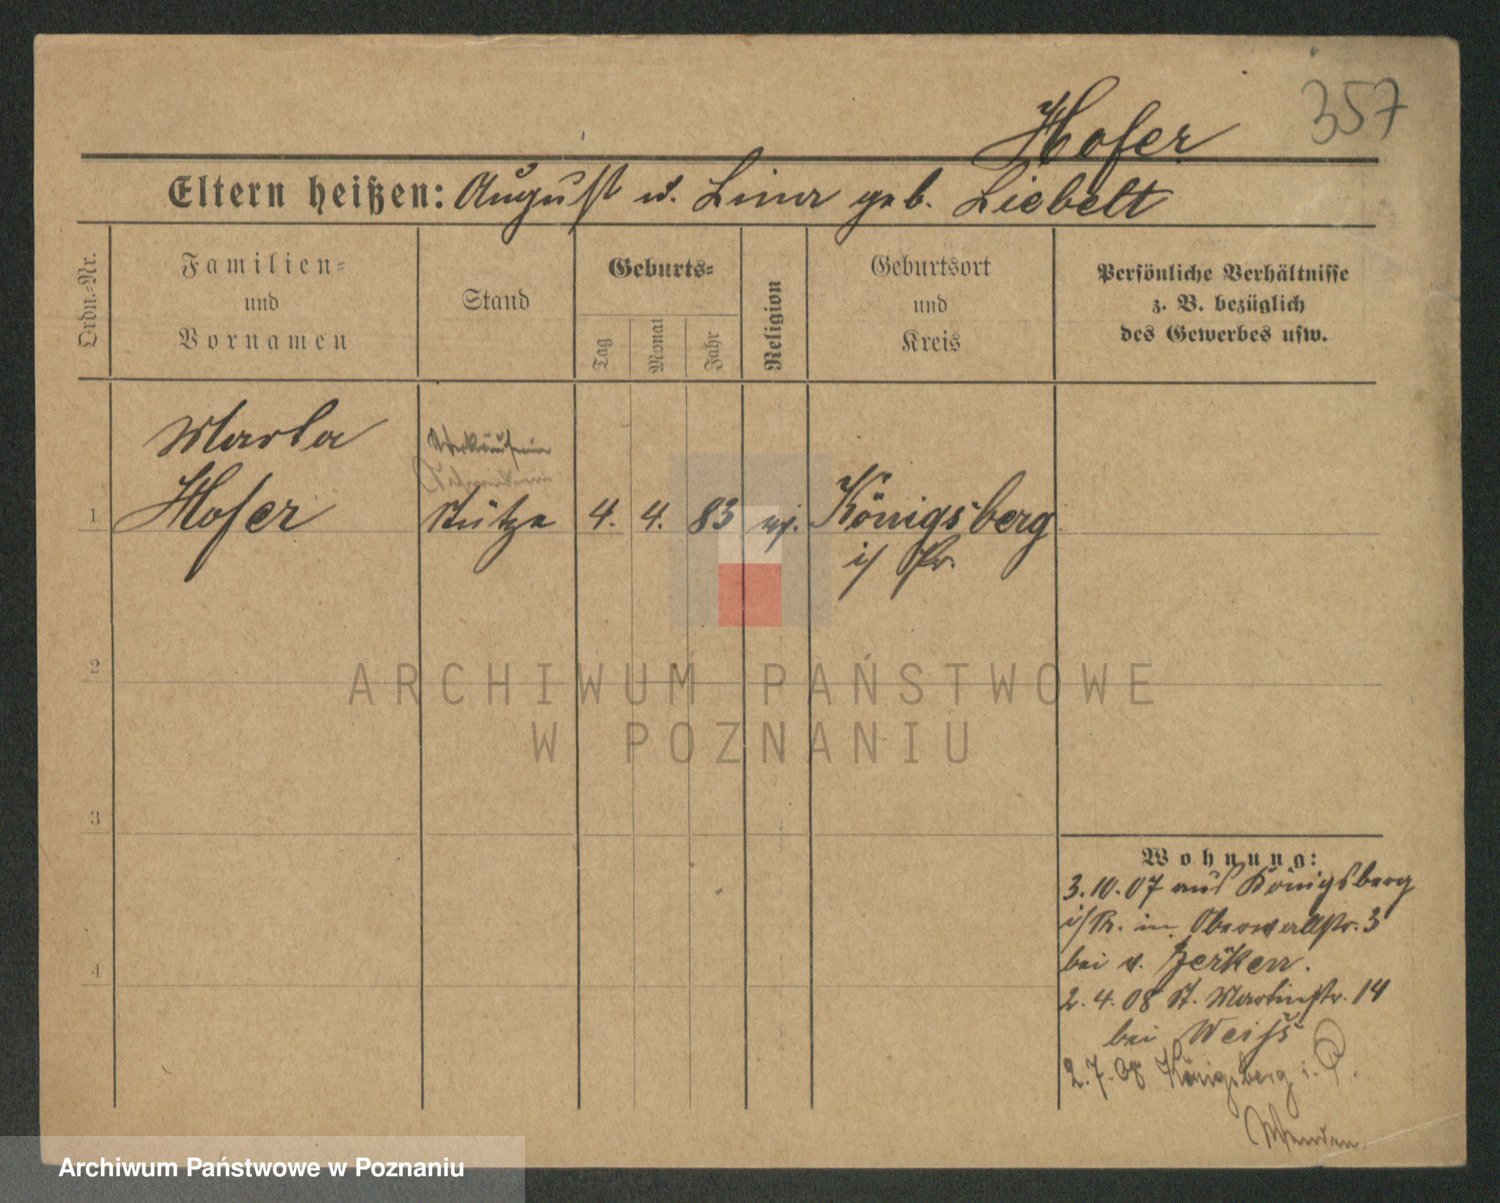 357
Hofer
Eltern heißen: August u. Lina geb. Liebelt
Ordn.-Nr.
Familien-
und
Vornamen
Stand
Geburts-
Tag
Monat
Jahr
Religion
Geburtsort
und
Kreis
Persönliche Verhältnisse
z. B. bezüglich
des Gewerbes usw.
Marta
Verkäuferin
1 Hofer Stütze 4. 4. 83 ev. Königsberg
i/ Pr.
2
3
4
Wohnung:
3.10.07 aus Königsberg
i/Pr. in Oberwallstr. 3
bei v. Zerken.
2.4.08 St. Martinstr. 14
bei Weiß
2.7.08 Königsberg i. P.
ARCHIWUM PAŃSTWOWE
W POZNANIU
Archiwum Państwowe w Poznaniu